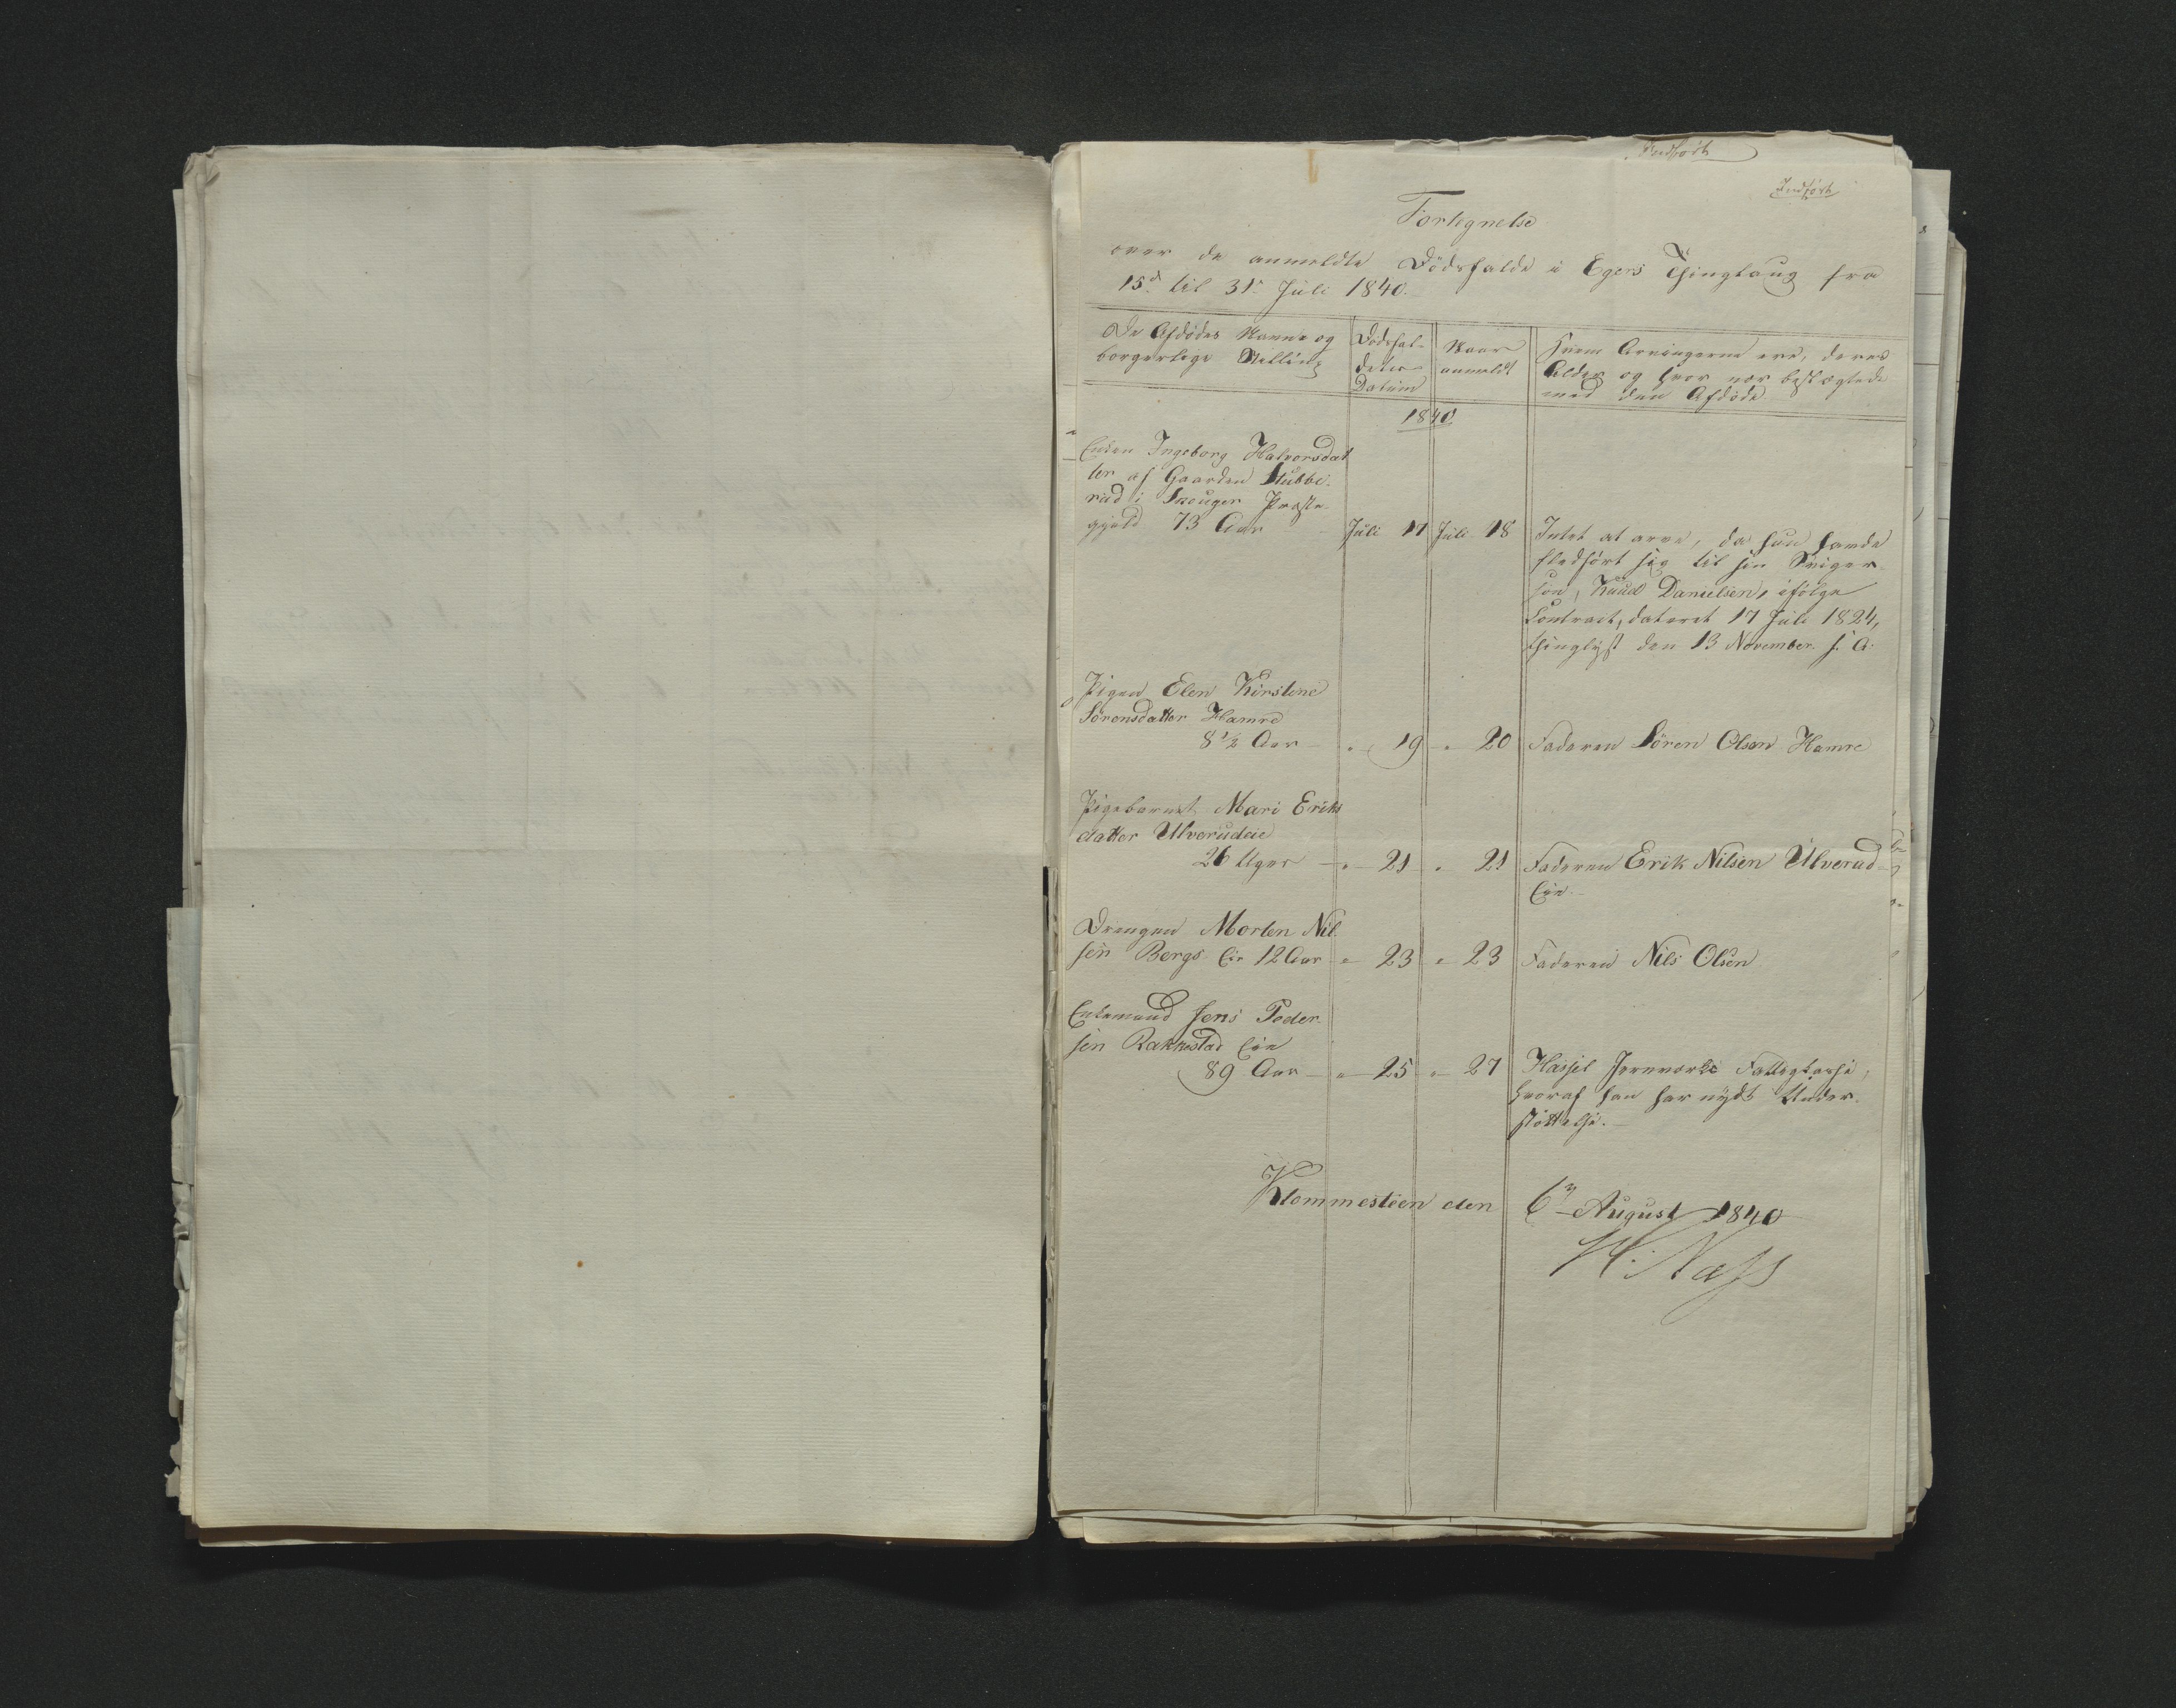 Indført
Indført
Fortegnelse
over de anmeldte Dödsfalde i Egers Thinglaug fra
15d til 31te Juli 1840.
De Afdødes Navne og borgerlige Stilling
Dødsfaldetes Datum
Naar anmeldt
Hvem Arvingerne ere, deres Alder og hvor nær beslægtede med den Afdøde
1840
Enken Ingeborg Halvorsdat
ter af Gaarden Stubbe-
rud i Skouger Præste-
gjeld 73 Aar - Juli 17 Juli 18 Intet at arve, da hun havde
fledført sig til sin Sviger-
søn, Knud Danielsen, ifølge
Contract, dateret 17 Juli 1824,
thinglyst den 13 November s. A.
Pigen Elen Kirstine
Sørensdatter Hamre
8 1/2 Aar - " 19 " 20 Faderen Sören Olsen Hamre
Pigebarnet Mari Eriks
datter Ulverudeie
26 Uger - " 21 " 21 Faderen Erik Nilsen Ulverud-
Eie.
Drengen Morten Nil
sen Bergs Eie 12 Aar " 23 " 23 Faderen Nils Olsen
Enkemand Jens Peder-
sen Rakkestad Eie
89 Aar - " 25 " 27 Hassel Jernværks Fattigkasse,
hvoraf han har nydt Under-
støttelse.
Klommesteen den 6te August 1840
H. Næss